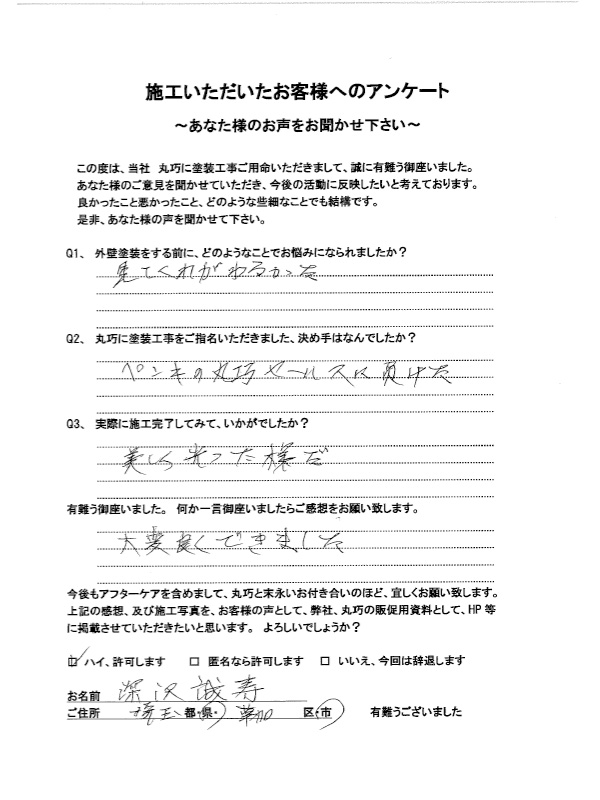 施工いただいたお客様へのアンケート
～あなた様のお声をお聞かせ下さい～
この度は、当社　丸巧に塗装工事ご用命いただきまして、誠に有難う御座いました。
あなた様のご意見を聞かせていただき、今後の活動に反映したいと考えております。
良かったこと悪かったこと、どのような些細なことでも結構です。
是非、あなた様の声を聞かせて下さい。
Q1、 外壁塗装をする前に、どのようなことでお悩みになられましたか？
見てくれがわるかった
Q2、 丸巧に塗装工事をご指名いただきました、決め手はなんでしたか？
ペンキの丸巧セールスに負けた
Q3、 実際に施工完了してみて、いかがでしたか？
美しく光った様だ
有難う御座いました。 何か一言御座いましたらご感想をお願い致します。
大変良くできました
今後もアフターケアを含めまして、丸巧と末永いお付き合いのほど、宜しくお願い致します。
上記の感想、及び施工写真を、お客様の声として、弊社、丸巧の販促用資料として、HP等
に掲載させていただきたいと思います。 よろしいでしょうか？
☑ ハイ、許可します　□ 匿名なら許可します　□ いいえ、今回は辞退します
お名前　深沢誠寿
ご住所　埼玉 都・県・ 草加 区・市　有難うございました